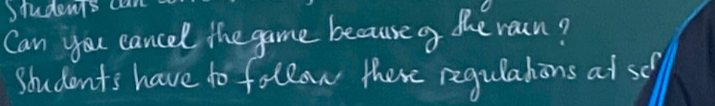 Students can
Can you cancel the game because of the rain?
Students have to follow these regulations at sc